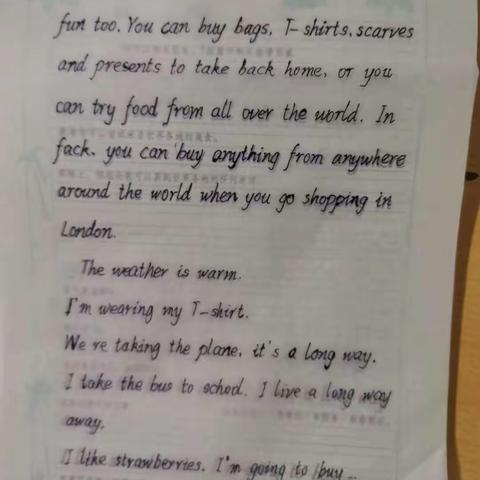 fun too. You can buy bags, T-shirts, scarves
and presents to take back home, or you
can try food from all over the world. In
fack. you can buy anything from anywhere
around the world when you go shopping in
London.
The weather is warm.
I'm wearing my T-shirt.
We re taking the plane, it's a long way.
I take the bus to school. I live a long way
away.
I like strawberries. I'm going to buy...